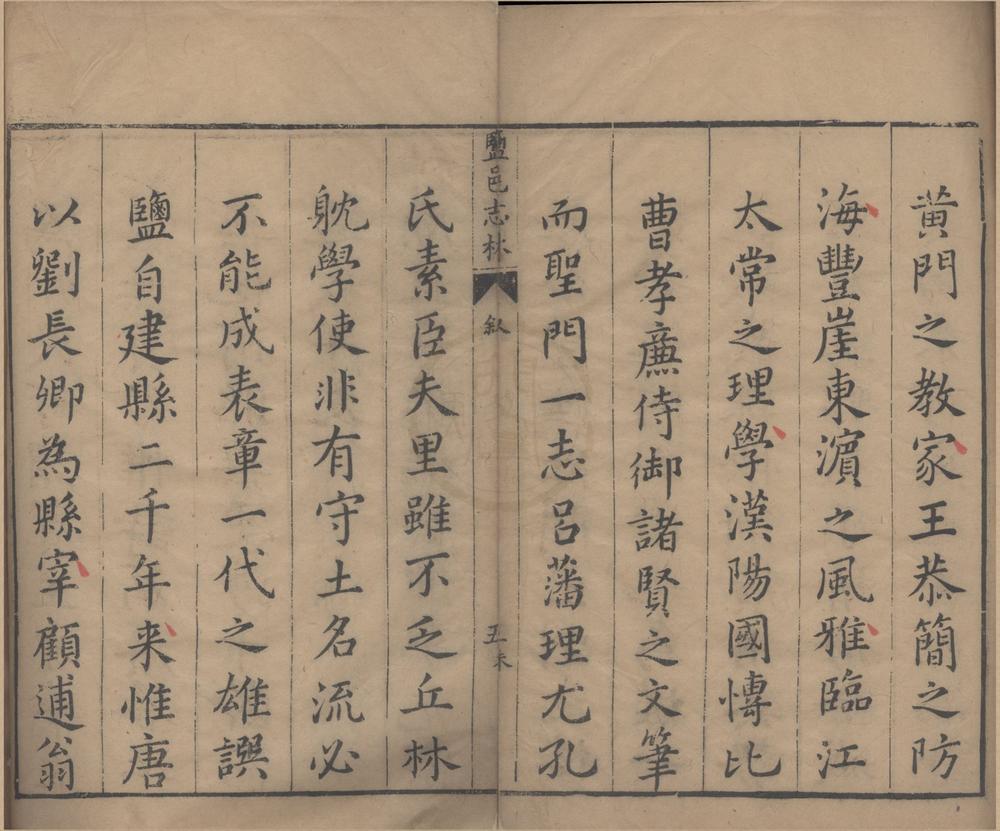 黃門之教家王恭簡之防
海豐崖東濵之風雅臨江
太常之理學漢陽國愽比
曹孝廉侍御諸賢之文筆
而聖門一志呂藩理尤孔
鹽邑志林 叙 五 未
氏素臣夫里雖不乏丘林
躭學使非有守土名流必
不能成表章一代之雄譔
鹽自建縣二千年来惟唐
以劉長卿為縣宰顧逋翁